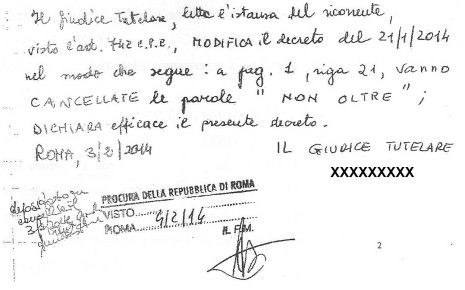 Il Giudice Tutelare, letta l'istanza del ricorrente,
visto l'art. 742 c.p.c., MODIFICA il decreto del 21/1/2014
nel modo che segue: a pag. 1, riga 21, vanno
CANCELLATE le parole "NON OLTRE";
DICHIARA efficace il presente decreto.
ROMA, 3/2/2014 IL GIUDICE TUTELARE
XXXXXXXXX
PROCURA DELLA REPUBBLICA DI ROMA
VISTO
ROMA 4/2/14
IL P.M.
2